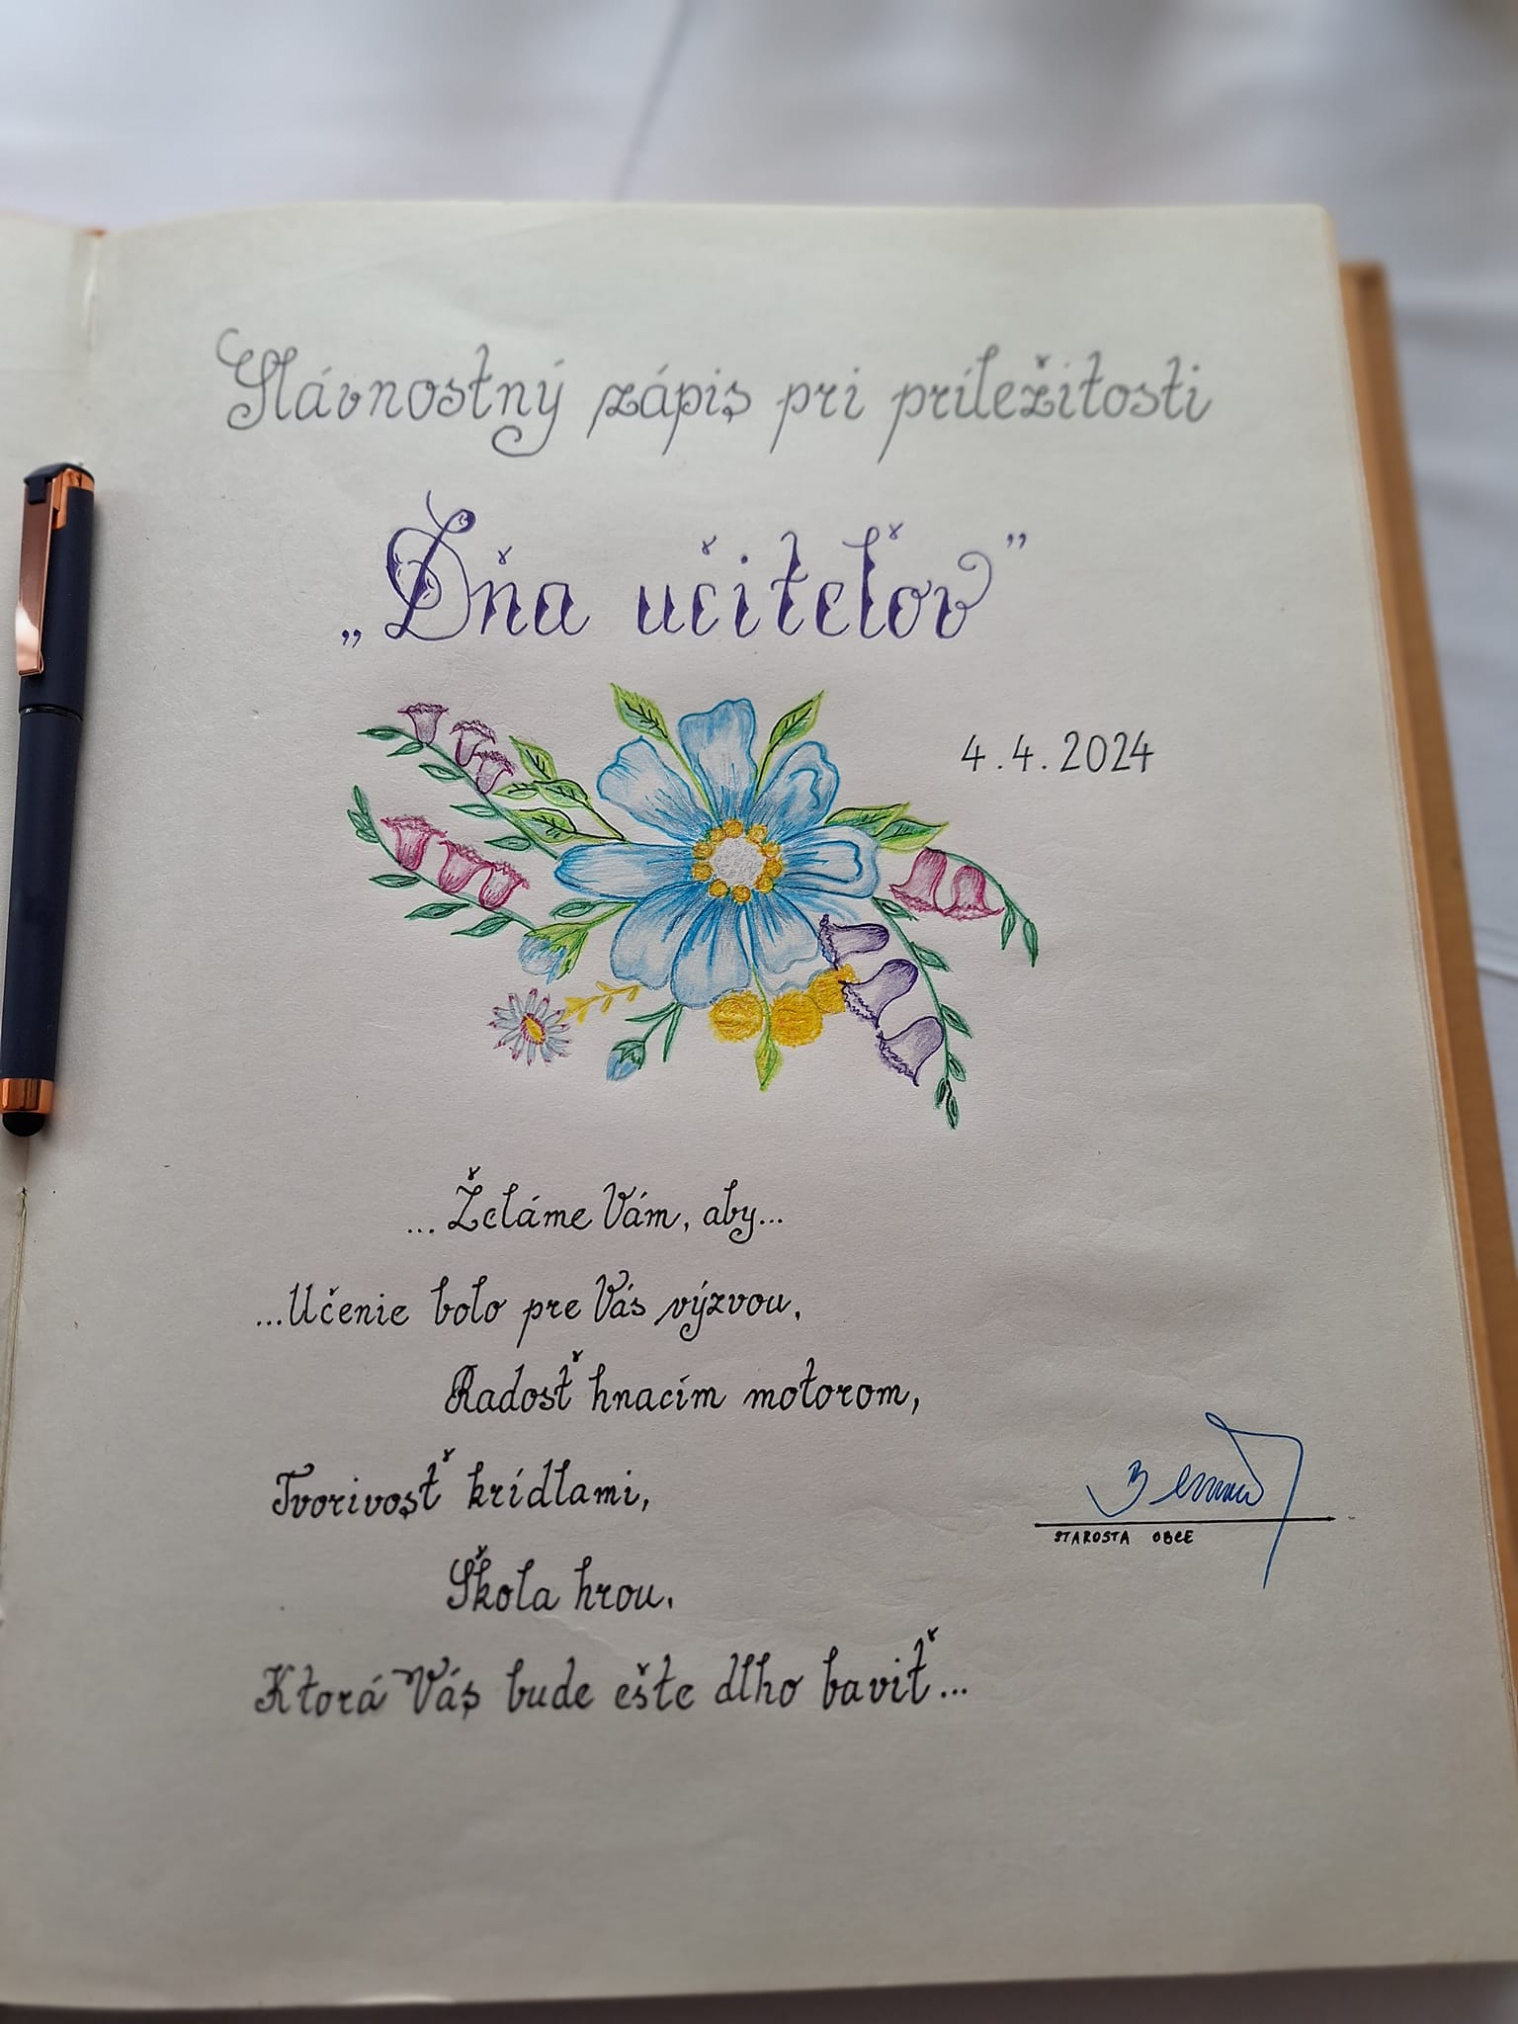 Slávnostný zápis pri príležitosti
„Dňa učiteľov”
4.4.2024
...Želáme Vám, aby...
...Učenie bolo pre Vás výzvou,
Radosť hnacím motorom,
Tvorivosť krídlami,
Škola hrou.
Ktorá Vás bude ešte dlho baviť...
STAROSTA OBCE